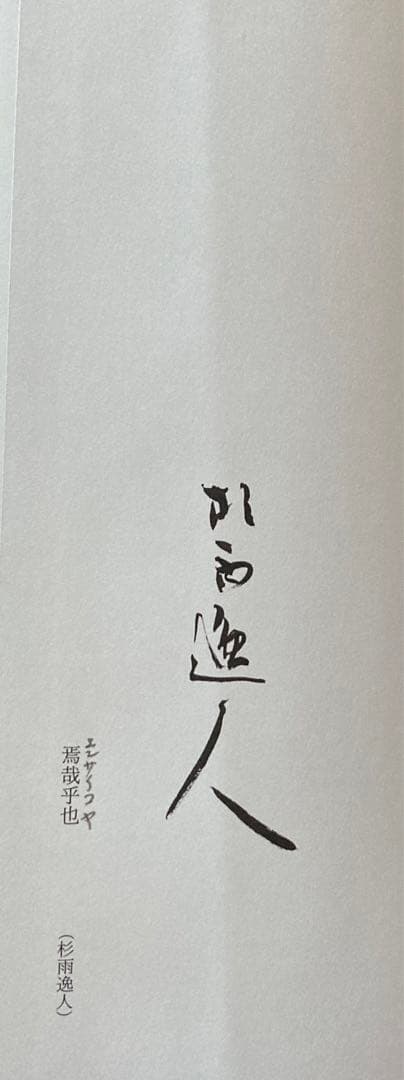 杉雨逸人
エンサイコヤ
焉哉乎也
（杉雨逸人）